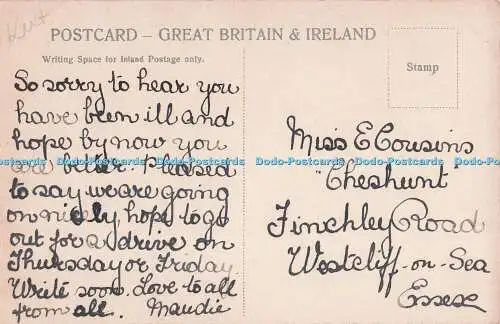 Kent
POSTCARD – GREAT BRITAIN & IRELAND
Writing Space for Inland Postage only.
Stamp
So sorry to hear you
have been ill and
hope by now you
are better. Pleased
to say we are going
on nicely hope to go
out for a drive on
Thursday or Friday.
Write soon. Love to all
from all. Maudie
Miss E Cousins
"Cheshunt"
Finchley Road
Westcliff-on-Sea
Essex
Dodo-Postcards Dodo-Postcards Dodo-Postcards Dodo-Postcards Dodo-Postcards Dodo-Postcards